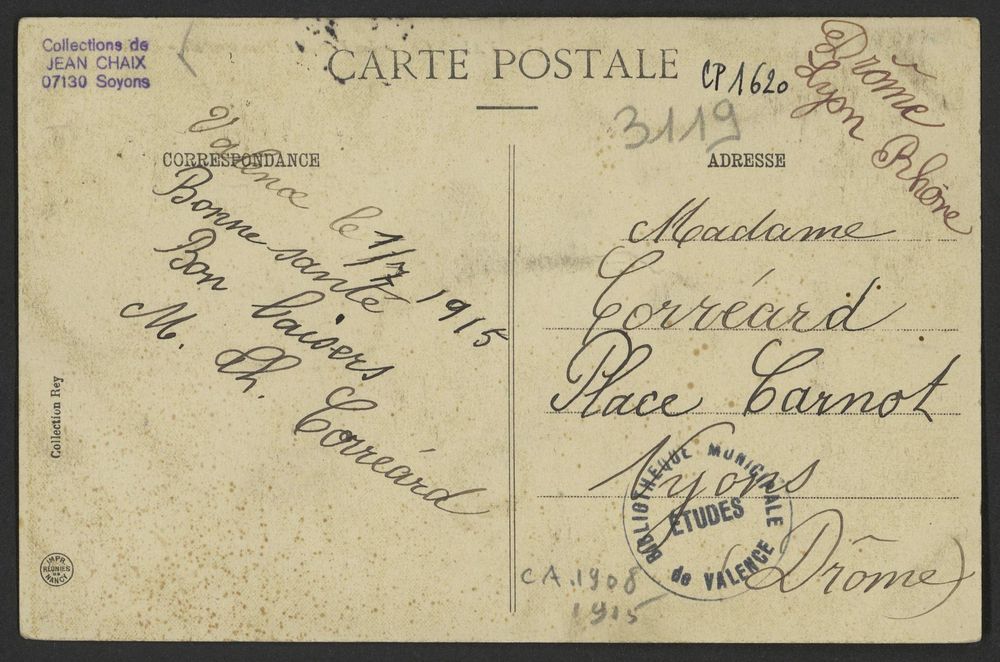 Collections de
JEAN CHAIX
07130 Soyons
CARTE POSTALE
CP1620
3119
Drôme
Lyon Rhône
CORRESPONDANCE
Valence le 1/7 1915
Bonne santé
Bon baisers
M. Ch. Corréard
ADRESSE
Madame
Corréard
Place Carnot
Nyons
(Drôme)
BIBLIOTHEQUE MUNICIPALE
ETUDES
de VALENCE
CA.1908
1915
Collection Rey
IMPR.
REUNIES
DE
NANCY